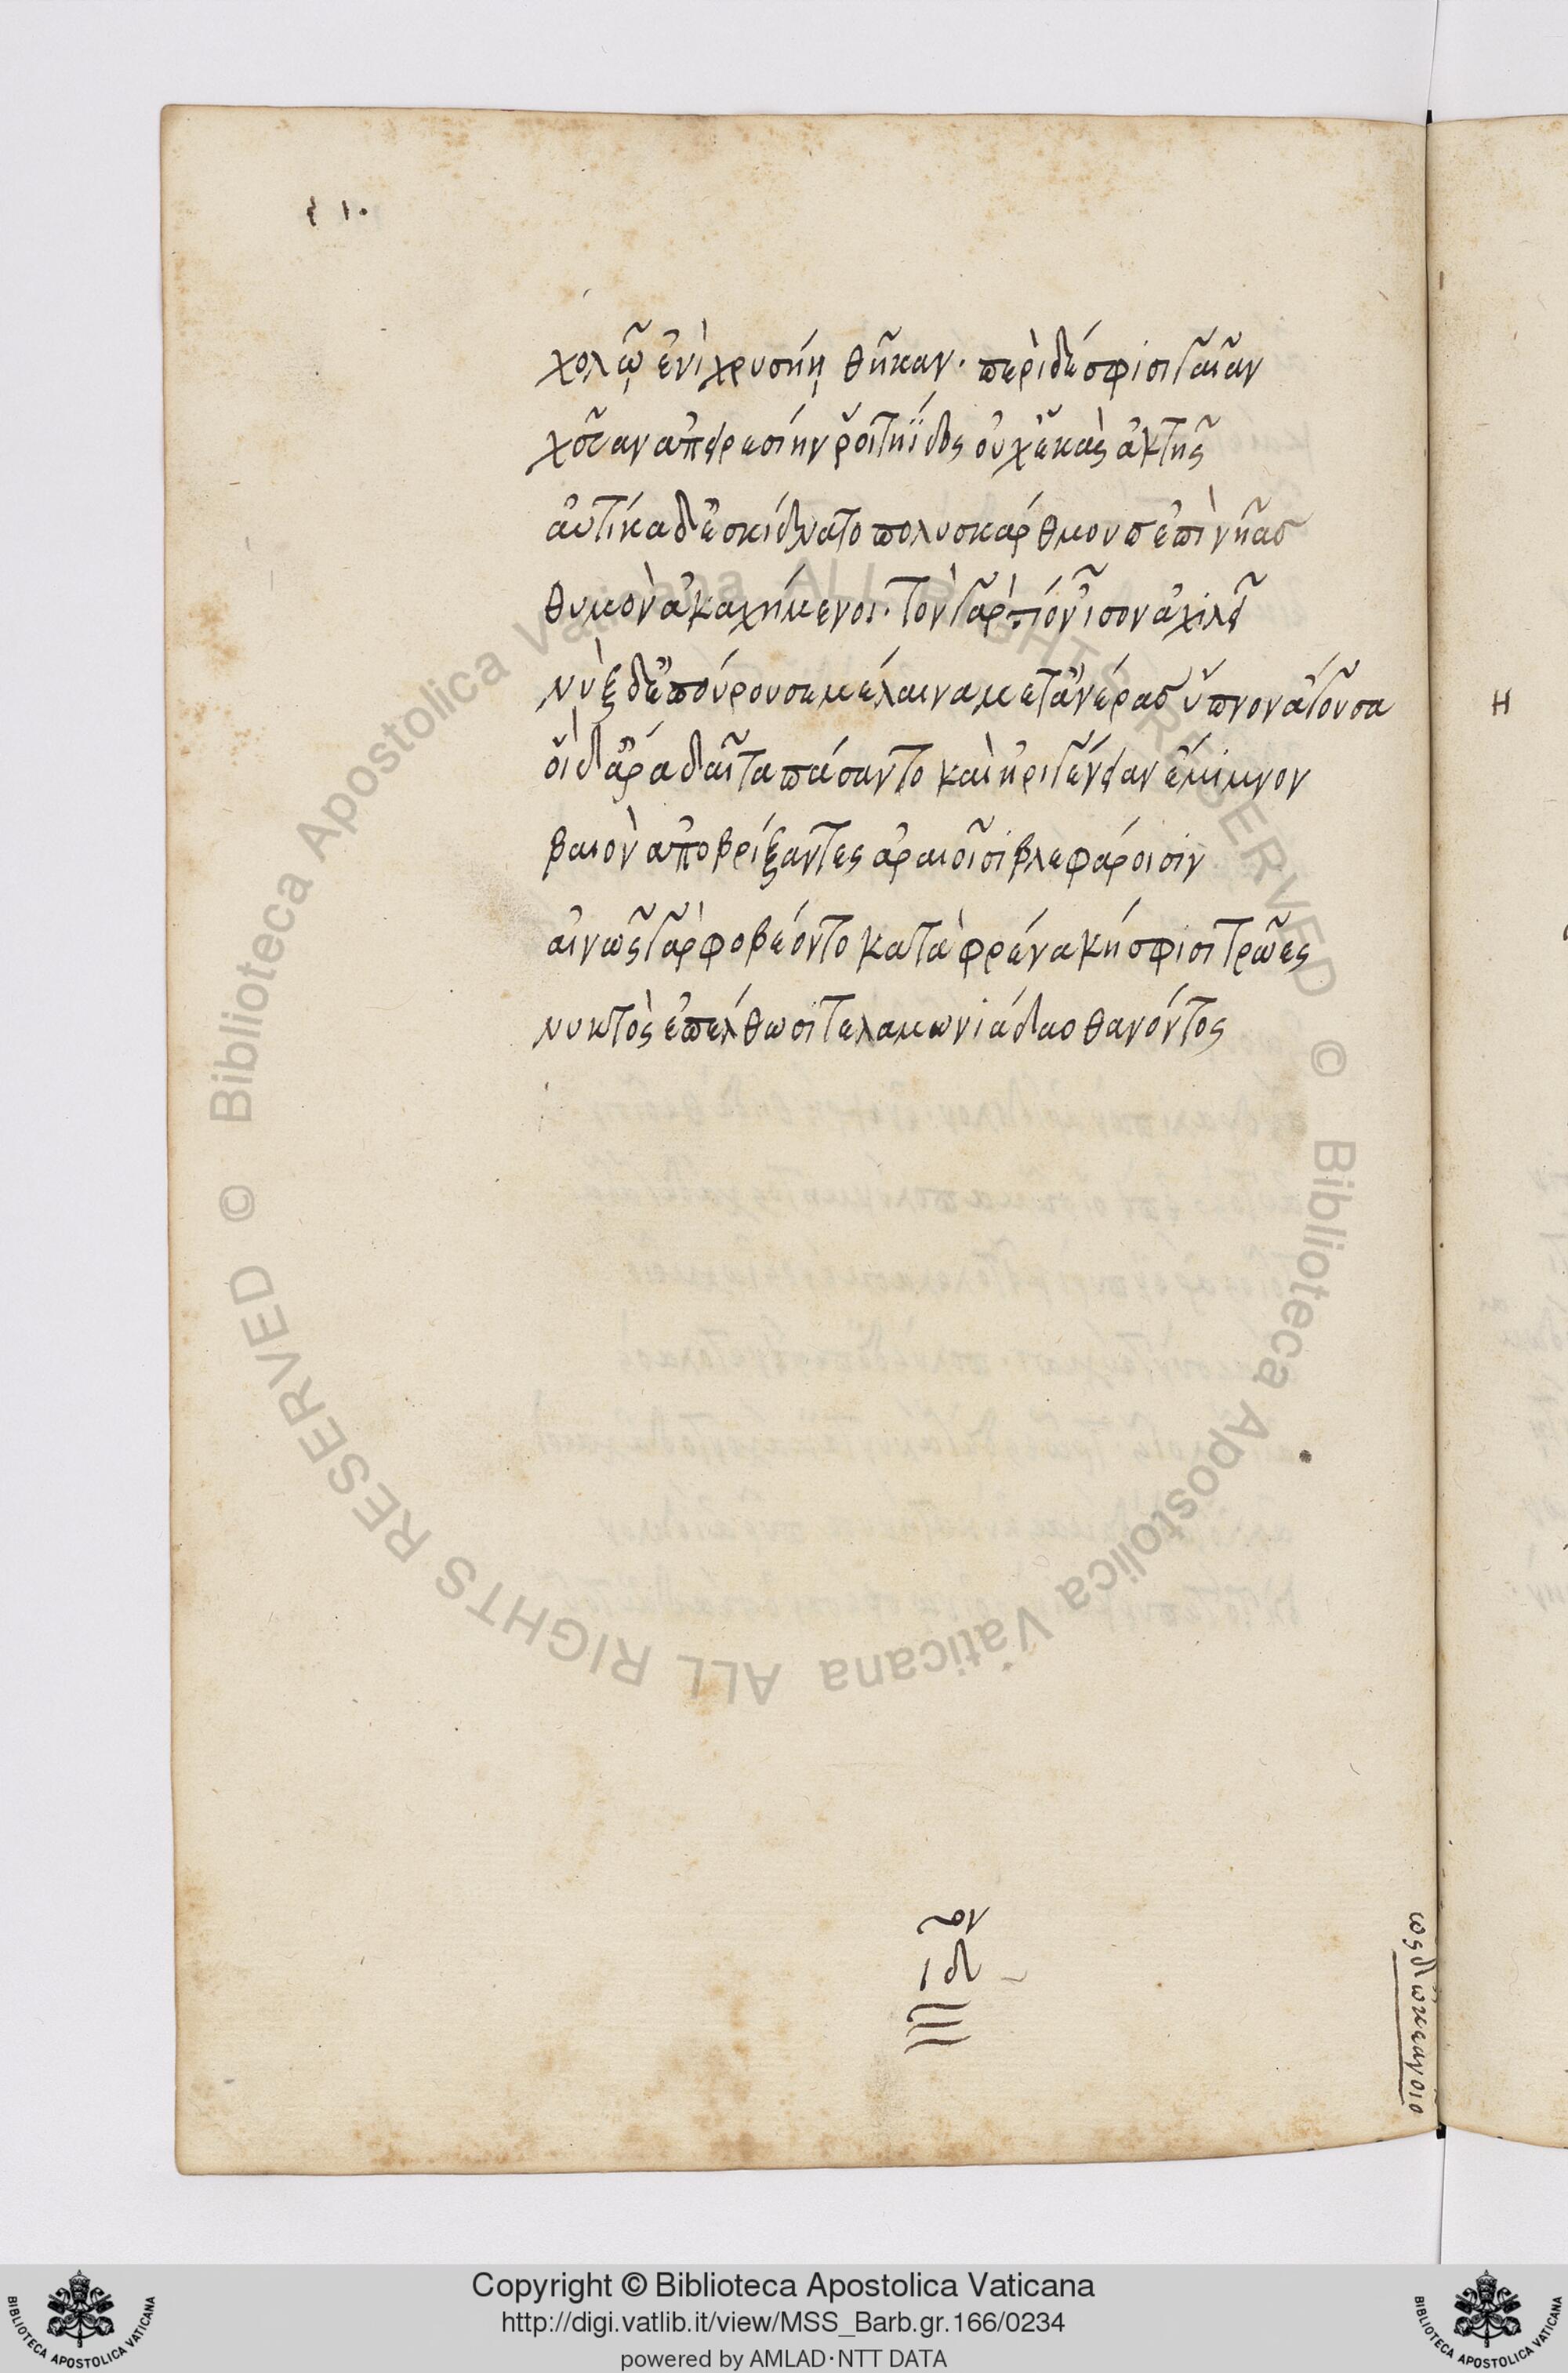 χολῷ ἐνὶ χρυσῄη θῆκαν· περὶ δέ σφισι γαῖαν
χεῦαν ἀπειρεσίην ῥοιτηΐδος οὐχ ἑκὰς ἀκτῆς
αὐτίκα δ' ἐσκίδνατο πολυσκάρθμουσ ἐπὶ νῆασ
θυμὸν ἀκαχήμενοι· τὸν γὰρ τίον ἶσον ἀχιλεῖ
νὺξ δ' ἐπόρουσε μέλαινα μετ' ἀνέρασ ὕπνον ἄγουσα
οἱ δ' ἄρα δαῖτα πάσαντο καὶ ἠριγένειαν ἔμιμνον
βαιὸν ἀποβρίξαντες ἀραιοῖσι βλεφάροισιν
αἰνῶς γὰρ φοβέοντο κατὰ φρένα μή σφισι τρῶες
νυκτὸς ἐπέλθωσι τελαμωνιάδαο θανόντος
ον
ιδ
ως δ' ὠκεανοῖο
Η
Copyright © Biblioteca Apostolica Vaticana
http://digi.vatlib.it/view/MSS_Barb.gr.166/0234
powered by AMLAD·NTT DATA
BIBLIOTECA APOSTOLICA VATICANA
BIBLIOTECA APOSTOLICA VATICANA
© Biblioteca Apostolica Vaticana ALL RIGHTS RESERVED
© Biblioteca Apostolica Vaticana ALL RIGHTS RESERVED